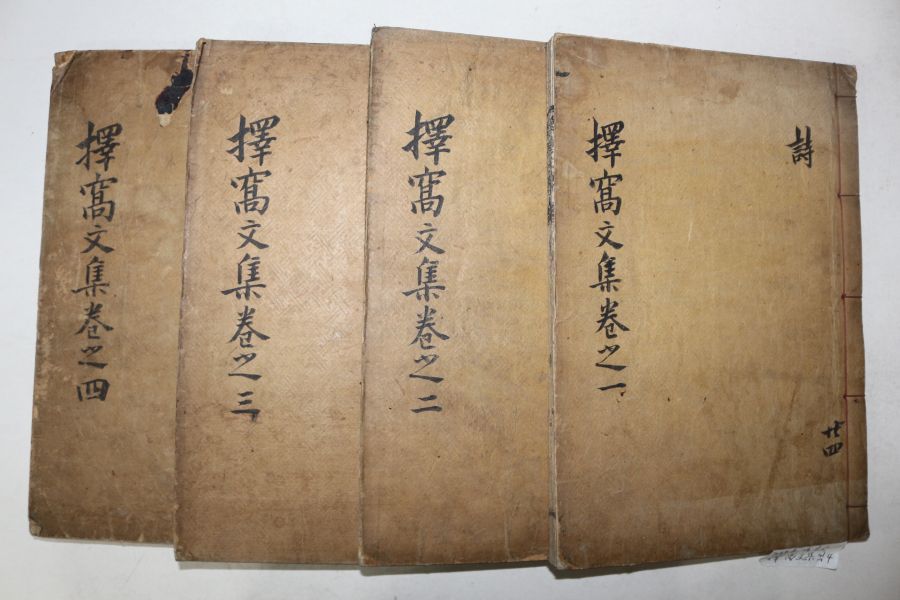 詩
擇窩文集卷之一
廿四
擇窩文集卷之二
擇窩文集卷之三
擇窩文集卷之四